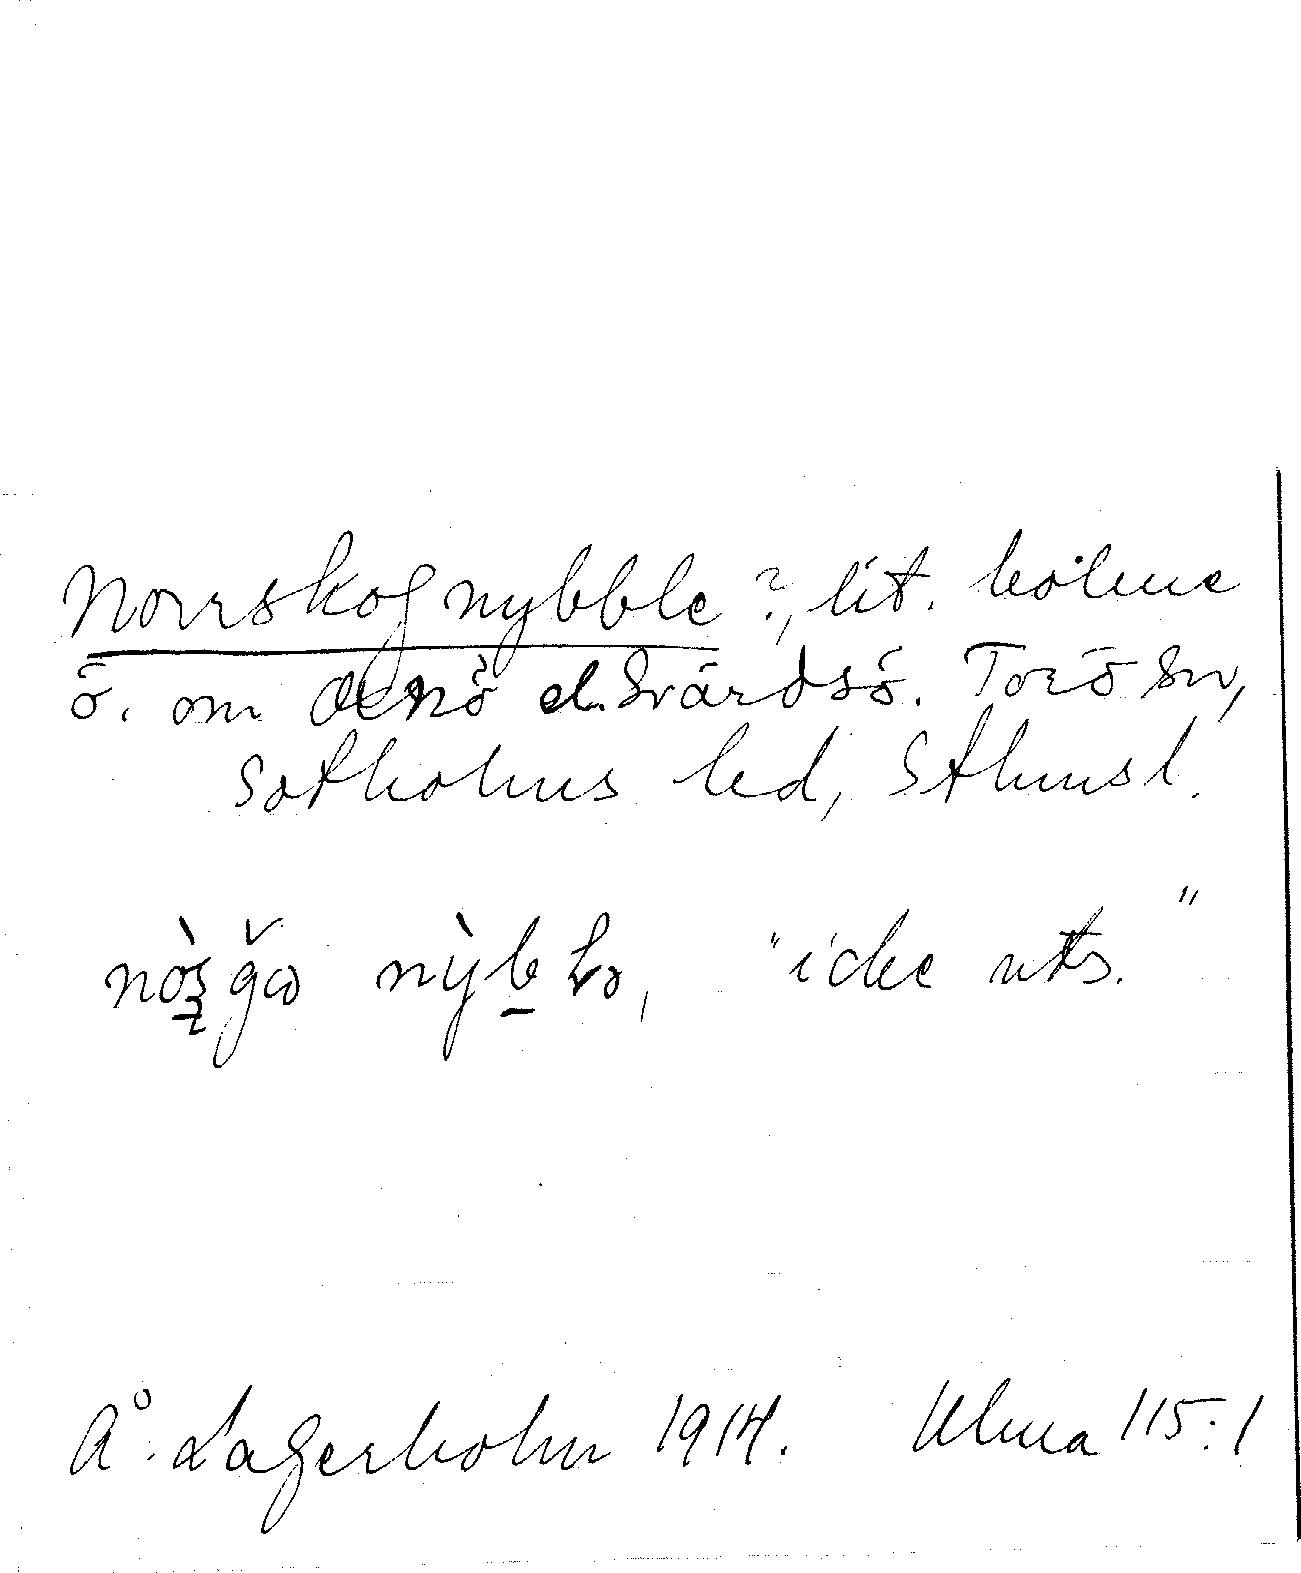 Norrskog nybble ?, lit. holme
ö. om Oxnö el. Svärdsö. Torö sn,
Sotholms hd, Sthmsl.
"icke uts."
Å. Lagerholm 1914. Ulma 115:1